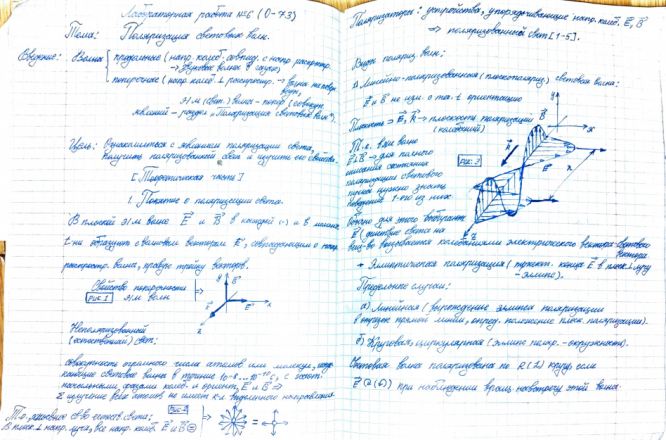 Лабораторная работа №6 (О-73)
Тема: Поляризация световых волн.
Введение: Волны
продольные (напр. колеб. совпад. с напр. распростр.
→ звуковые волны в газах)
поперечные (напр. колеб. ⊥ распростр. → волны на пов-ти
воды,
Э/м (свет.) волны - попер (совокуп.
явлений - раздел „Поляризация световых волн").
Цель: Ознакомиться с явлением поляризации света,
получить поляризованный свет и изучить его свойства.
[Теоретическая часть]
1. Понятие о поляризации света.
В плоской э/м волне E и B в каждой (·) и в момент
t на образуют с волновым вектором K, совпадающим с напр.
распростр. волны, правую тройку векторов.
Свойство поперечности
Рис 1 э/м волн
y
B
E
x
k
z
Неполяризованный
(естественный) свет:
совокупность огромного числа атомов или молекул,
световые волны в течение 10⁻⁸ с
начальными фазами колеб. и ориент. E и B ⇒
Σ излучение всех атомов не имеет к-л выделенного направления
Т.о., основное св-во естеств. света:
Рис 2
В плоск. ⊥ напр. луча, все напр. колеб. E и B
Поляризаторы: устройства, упорядочивающие напр. колеб. E, B
⇒ поляризованный свет [1-5].
Виды поляриз. волн:
1) Линейно-поляризованная (плоскополяр.) световая волна:
E и B не изм. с теч. t ориентацию
Плоскость ⇒ E, K → плоскость поляризации
(колебаний)
Т.к. в э/м волне
E ⊥ B ⇒ для полного
описания состояния
поляризации светового
пучка нужно знать
поведение 1-го из них
Обычно для этого выбирают
E (действие света на
вещ-во возбуждается колебаниями электрического вектора - светового
вектора
рис. 3
y
B
x
K
E
λ
z
+ Эллиптическая поляризация (проекц. конца E в плоск. ⊥ лучу
- эллипс).
Предельные случаи:
а) Линейная (вырождение эллипса поляризации
в отрезок прямой линии, опред. положение плоск. поляризации).
б) Круговая, циркулярная (эллипс поляр. - окружность).
Световая волна поляризована по R (L) кругу, если
E при наблюдении вращ. навстречу этой волне